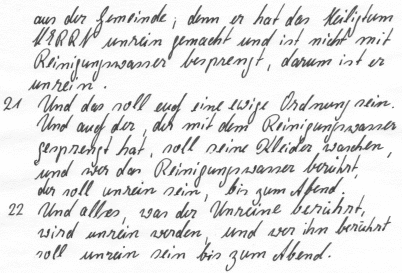 aus der Gemeinde, denn er hat das Heiligtum
HERRN unrein gemacht und ist nicht mit
Reinigungswasser besprengt, darum ist er
unrein.
21 Und das soll euch eine ewige Ordnung sein.
Und auch der, der mit dem Reinigungswasser
gesprengt hat, soll seine Kleider waschen,
und wer das Reinigungswasser berührt,
der soll unrein sein, bis zum Abend.
22 Und alles, was der Unreine berührt,
wird unrein werden, und wer ihn berührt
soll unrein sein bis zum Abend.